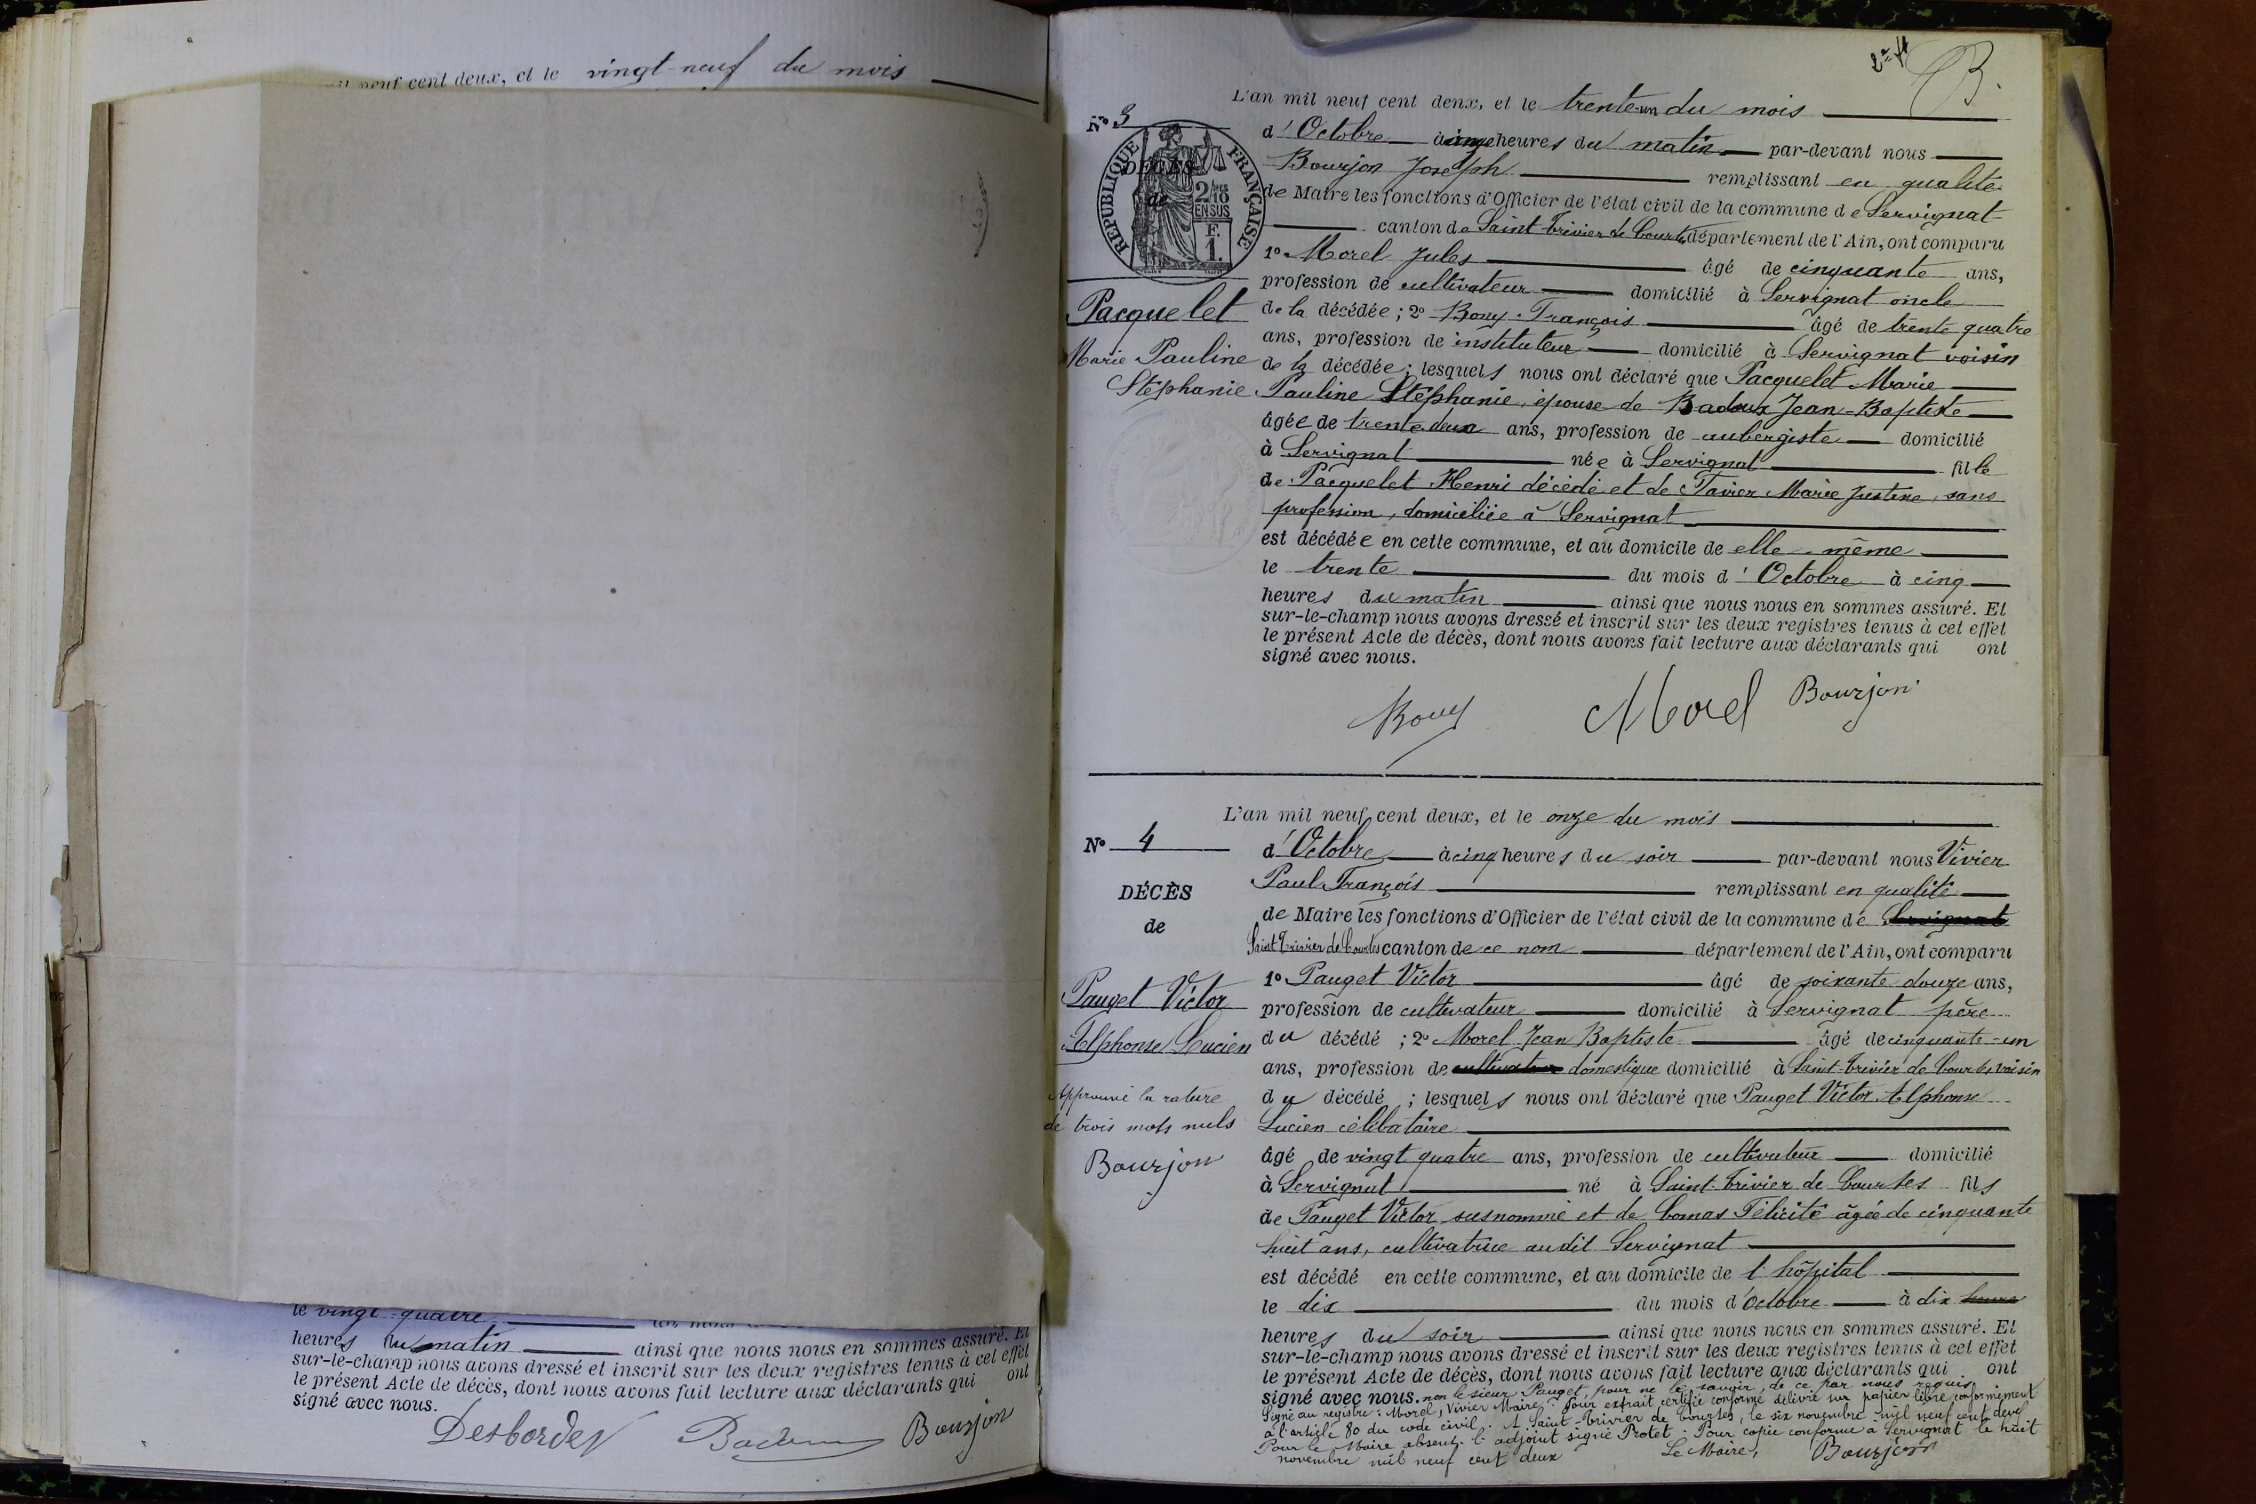 neuf cent deux, et le vingt-neuf du mois
le vingt-quatre
heures du matin ainsi que nous nous en sommes assuré. Et
sur-le-champ nous avons dressé et inscrit sur les deux registres tenus à cet effet
le présent Acte de décès, dont nous avons fait lecture aux déclarants qui ont
signé avec nous.
Desbordes Bourjon
L'an mil neuf cent deux, et le trente-un du mois
N° 3
d'Octobre à heures du matin par-devant nous
Bourjon Joseph remplissant en qualité
de Maire les fonctions d'Officier de l'état civil de la commune de Servignat
canton de Saint-Trivier de Courtes département de l'Ain, ont comparu
1° Morel Jules âgé de cinquante ans,
profession de cultivateur domicilié à Servignat oncle
de la décédée ; 2° Bouy François âgé de trente quatre
ans, profession de instituteur domicilié à Servignat voisin
de la décédée ; lesquels nous ont déclaré que Pacquelet Marie
Pauline Stéphanie, épouse de Badoux Jean-Baptiste
âgée de trente deux ans, profession de aubergiste domicilié
à Servignat née à Servignat fille
de Pacquelet Henri décédé et de Tavier Marie Justine, sans
profession, domiciliée à Servignat
est décédée en cette commune, et au domicile de elle-même
le trente du mois d'Octobre à cinq
heures du matin ainsi que nous nous en sommes assuré. Et
sur-le-champ nous avons dressé et inscrit sur les deux registres tenus à cet effet
le présent Acte de décès, dont nous avons fait lecture aux déclarants qui ont
signé avec nous.
DÉCÈS
de
RÉPUBLIQUE FRANÇAISE
2/10
EN SUS
F.
1.
Pacquelet
Marie Pauline
Stéphanie
Bouy Morel Bourjon
L'an mil neuf cent deux, et le onze du mois
N° 4
d'Octobre à cinq heures du soir par-devant nous Vivier
Paul François remplissant en qualité
de Maire les fonctions d'Officier de l'état civil de la commune de Servignat
Saint Trivier de Courtes canton de ce nom département de l'Ain, ont comparu
1° Pauget Victor âgé de soixante douze ans,
profession de cultivateur domicilié à Servignat père
du décédé ; 2° Morel Jean Baptiste âgé de cinquante-un
ans, profession de cultivateur domestique domicilié à Saint-Trivier de Courtes voisin
du décédé ; lesquels nous ont déclaré que Pauget Victor Alphonse
Lucien célibataire
âgé de vingt quatre ans, profession de cultivateur domicilié
à Servignat né à Saint-Trivier de Courtes fils
de Pauget Victor susnommé et de Comas Félicité âgée de cinquante
huit ans, cultivatrice audit Servignat
est décédé en cette commune, et au domicile de l'hôpital
le dix du mois d'octobre à dix heures
heures du soir ainsi que nous nous en sommes assuré. Et
sur-le-champ nous avons dressé et inscrit sur les deux registres tenus à cet effet
le présent Acte de décès, dont nous avons fait lecture aux déclarants qui ont
signé avec nous. non le sieur Pauget, pour ne le savoir, de ce par nous requis.
Signé au registre : Morel, Vivier Maire. Pour extrait certifié conforme délivré sur papier libre conformément
à l'article 80 du code civil. A Saint-Trivier de Courtes, le six novembre mil neuf cent deux
Pour le Maire absent l'adjoint signé Protet. Pour copie conforme à Servignat le huit
novembre mil neuf cent deux Le Maire, Bourjon
DÉCÈS
de
Pauget Victor
Alphonse Lucien
Approuvé la rature
de trois mots nuls
Bourjon